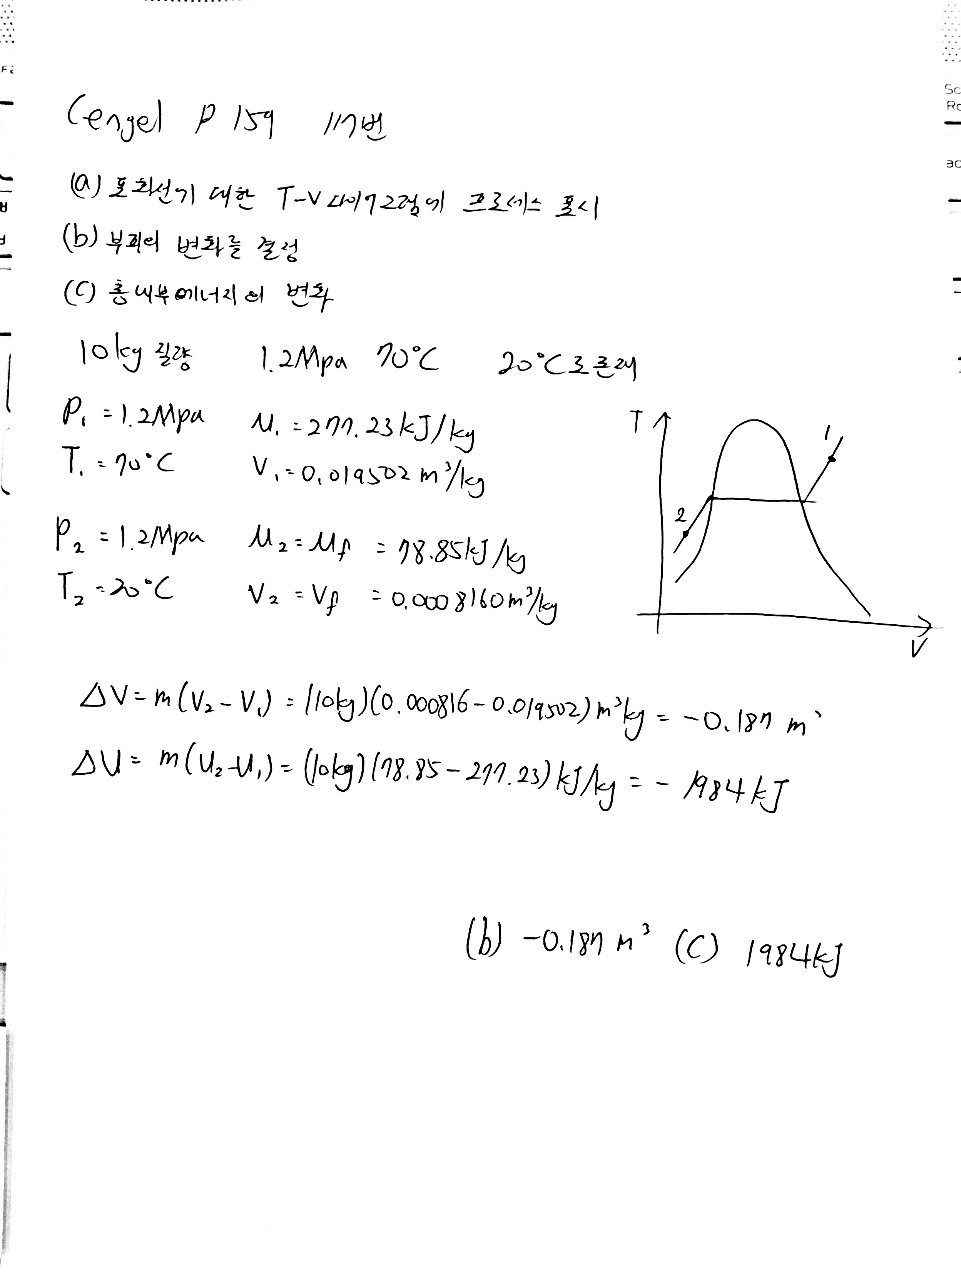 Cengel P 159 117번
(a) 포화선기 대한 T-V 다이어그램에 프로세스 표시
(b) 부피의 변화를 결정
(C) 총 내부에너지의 변화
10kg 질량 1.2Mpa 70°C 20°C로 존재
P₁ = 1.2Mpa u₁ = 277.23 kJ/kg
T₁ = 70°C V₁ = 0.019502 m³/kg
P₂ = 1.2Mpa u₂ = uf = 78.85kJ/kg
T₂ = 20°C V₂ = Vf = 0.0008160m³/kg
T
1
2
V
ΔV = m(V₂ - V₁) = (10kg)(0.000816 - 0.019502) m³/kg = -0.187 m³
ΔU = m(U₂ - U₁) = (10kg)(78.85 - 277.23) kJ/kg = - 1984 kJ
(b) -0.187 m³ (C) 1984kJ